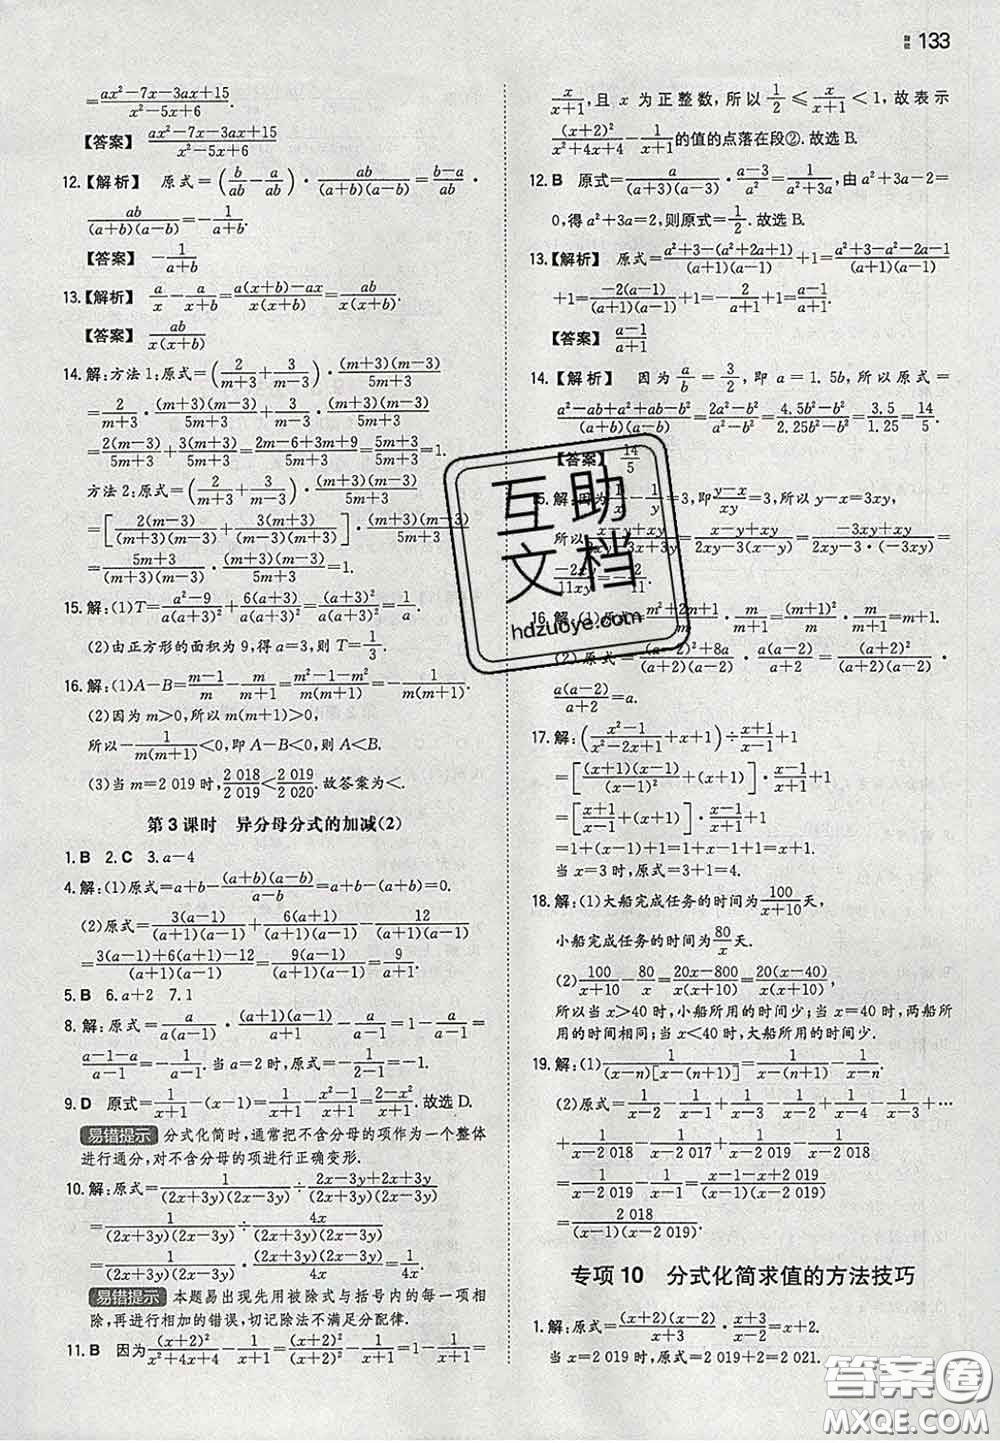 133
=(ax²-7x-3ax+15)/(x²-5x+6).
【答案】 (ax²-7x-3ax+15)/(x²-5x+6)
12.【解析】 原式=(b/ab-a/ab)·ab/((a+b)(a-b))=(b-a)/ab·
ab/((a+b)(a-b))=-1/(a+b).
【答案】 -1/(a+b)
13.【解析】 a/x-a/(x+b)=(a(x+b)-ax)/(x(x+b))=ab/(x(x+b)).
【答案】 ab/(x(x+b))
14.解:方法1:原式=(2/(m+3)+3/(m-3))·((m+3)(m-3))/(5m+3)
=2/(m+3)·((m+3)(m-3))/(5m+3)+3/(m-3)·((m+3)(m-3))/(5m+3)
=2(m-3)/(5m+3)+3(m+3)/(5m+3)=(2m-6+3m+9)/(5m+3)=(5m+3)/(5m+3)=1.
方法2:原式=(2/(m+3)+3/(m-3))·((m+3)(m-3))/(5m+3)
=[2(m-3)/((m+3)(m-3))+3(m+3)/((m+3)(m-3))]·((m+3)(m-3))/(5m+3)
=(5m+3)/((m+3)(m-3))·((m+3)(m-3))/(5m+3)=1.
15.解:(1)T=(a²-9)/(a(a+3)²)+6(a+3)/(a(a+3)²)=(a+3)²/(a(a+3)²)=1/a.
(2)由正方形的面积为9,得a=3,所以T=1/3.
16.解:(1)A-B=(m-1)/m-m/(m+1)=(m²-1-m²)/(m(m+1))=-1/(m(m+1)).
(2)因为m>0,所以m(m+1)>0,
所以-1/(m(m+1))<0,即A-B<0,所以A<B.
(3)当m=2 019时,2 018/2 019<2 019/2 020.故答案为<.
第3课时 异分母分式的加减(2)
1.B 2.C 3.a-4
4.解:(1)原式=a+b-((a+b)(a-b))/(a-b)=a+b-(a+b)=0.
(2)原式=3(a-1)/((a+1)(a-1))+6(a+1)/((a+1)(a-1))-12/((a+1)(a-1))
=(3(a-1)+6(a+1)-12)/((a+1)(a-1))=9(a-1)/((a+1)(a-1))=9/(a+1).
5.B 6.a+2 7.1
8.解:原式=a/(a(a-1))·((a+1)(a-1))/(a+1)-a/(a-1)=1-a/(a-1)=
(a-1-a)/(a-1)=-1/(a-1).当a=2时,原式=-1/(2-1)=-1.
9.D 原式=1/(x+1)-(x-1)=1/(x+1)-(x²-1)/(x+1)=(2-x²)/(x+1).故选D.
易错提示 分式化简时,通常把不含分母的项作为一个整体
进行通分,对不含分母的项进行正确变形.
10.解:原式=1/((2x+3y)(2x-3y))÷(2x-3y+2x+3y)/((2x+3y)(2x-3y))
=1/((2x+3y)(2x-3y))÷4x/((2x+3y)(2x-3y))
=1/((2x+3y)(2x-3y))·((2x+3y)(2x-3y))/4x=1/4x.
易错提示 本题易出现先用被除式与括号内的每一项相
除,再进行相加的错误,切记除法不满足分配律.
11.B 因为(x+2)²/(x²+4x+4)-1/(x+1)=(x+2)²/(x+2)²-1/(x+1)=1-1/(x+1)=
x/(x+1),且x为正整数,所以1/2≤x/(x+1)<1,故表示
(x+2)²/(x²+4x+4)-1/(x+1)的值的点落在段②.故选B.
12.B 原式=a/((a+3)(a-3))·(a-3)/a²=1/(a²+3a),由a²+3a-2=
0,得a²+3a=2,则原式=1/2.故选B.
13.【解析】 原式=(a²+3-(a²+2a+1))/((a+1)(a-1))+1=(a²+3-a²-2a-1)/((a+1)(a-1))
+1=-2(a-1)/((a+1)(a-1))+1=-2/(a+1)+1=(a-1)/(a+1).
【答案】 (a-1)/(a+1)
14.【解析】 因为a/b=3/2,即a=1.5b,所以原式=
(a²-ab+a²+ab-b²)/((a+b)(a-b))=(2a²-b²)/(a²-b²)=(4.5b²-b²)/(2.25b²-b²)=3.5/1.25=14/5.
【答案】 14/5
15.解:因为1/x-1/y=3,即(y-x)/xy=3,所以y-x=3xy,
所以(x-y+xy)/(2xy-3x+3y)=(x-y+xy)/(2xy-3(x-y))=(-3xy+xy)/(2xy-3·(-3xy))=
-2xy/11xy=-2/11.
(2)原式=((a-2)²+8a)/((a+2)(a-2))·a(a-2)/(a+2)=(a+2)²/((a+2)(a-2))·
a(a-2)/(a+2)=a.
17.解:((x²-1)/(x²-2x+1)+x+1)÷(x+1)/(x-1)+1
=[((x+1)(x-1))/(x-1)²+(x+1)]·(x-1)/(x+1)+1
=(x+1)/(x-1)·(x-1)/(x+1)+(x+1)·(x-1)/(x+1)+1
=1+(x-1)+1=x+1.
当x=3时,原式=3+1=4.
18.解:(1)大船完成任务的时间为100/(x+10)天,
小船完成任务的时间为80/x天.
(2)100/(x+10)-80/x=(20x-800)/(x(x+10))=20(x-40)/(x(x+10)),
所以当x>40时,小船所用的时间少;当x=40时,两船所
用的时间相同;当x<40时,大船所用的时间少.
19.解:(1)1/((x-n)[x-(n+1)])=1/(x-(n+1))-1/(x-n).
(2)原式=1/(x-2)-1/(x-1)+1/(x-3)-1/(x-2)+1/(x-4)-1/(x-3)+…
+1/(x-2 018)-1/(x-2 017)+1/(x-2 019)-1/(x-2 018)
=1/(x-2 019)-1/(x-1)
=2 018/((x-1)(x-2 019)).
专项10 分式化简求值的方法技巧
1.解:原式=((x+2)(x-2))/(x+3)·(x+3)/(x-2)=x+2.
当x=2 019时,原式=2 019+2=2 021.
互助
文档
hdzuoye.com
答案圈
MXQE.COM